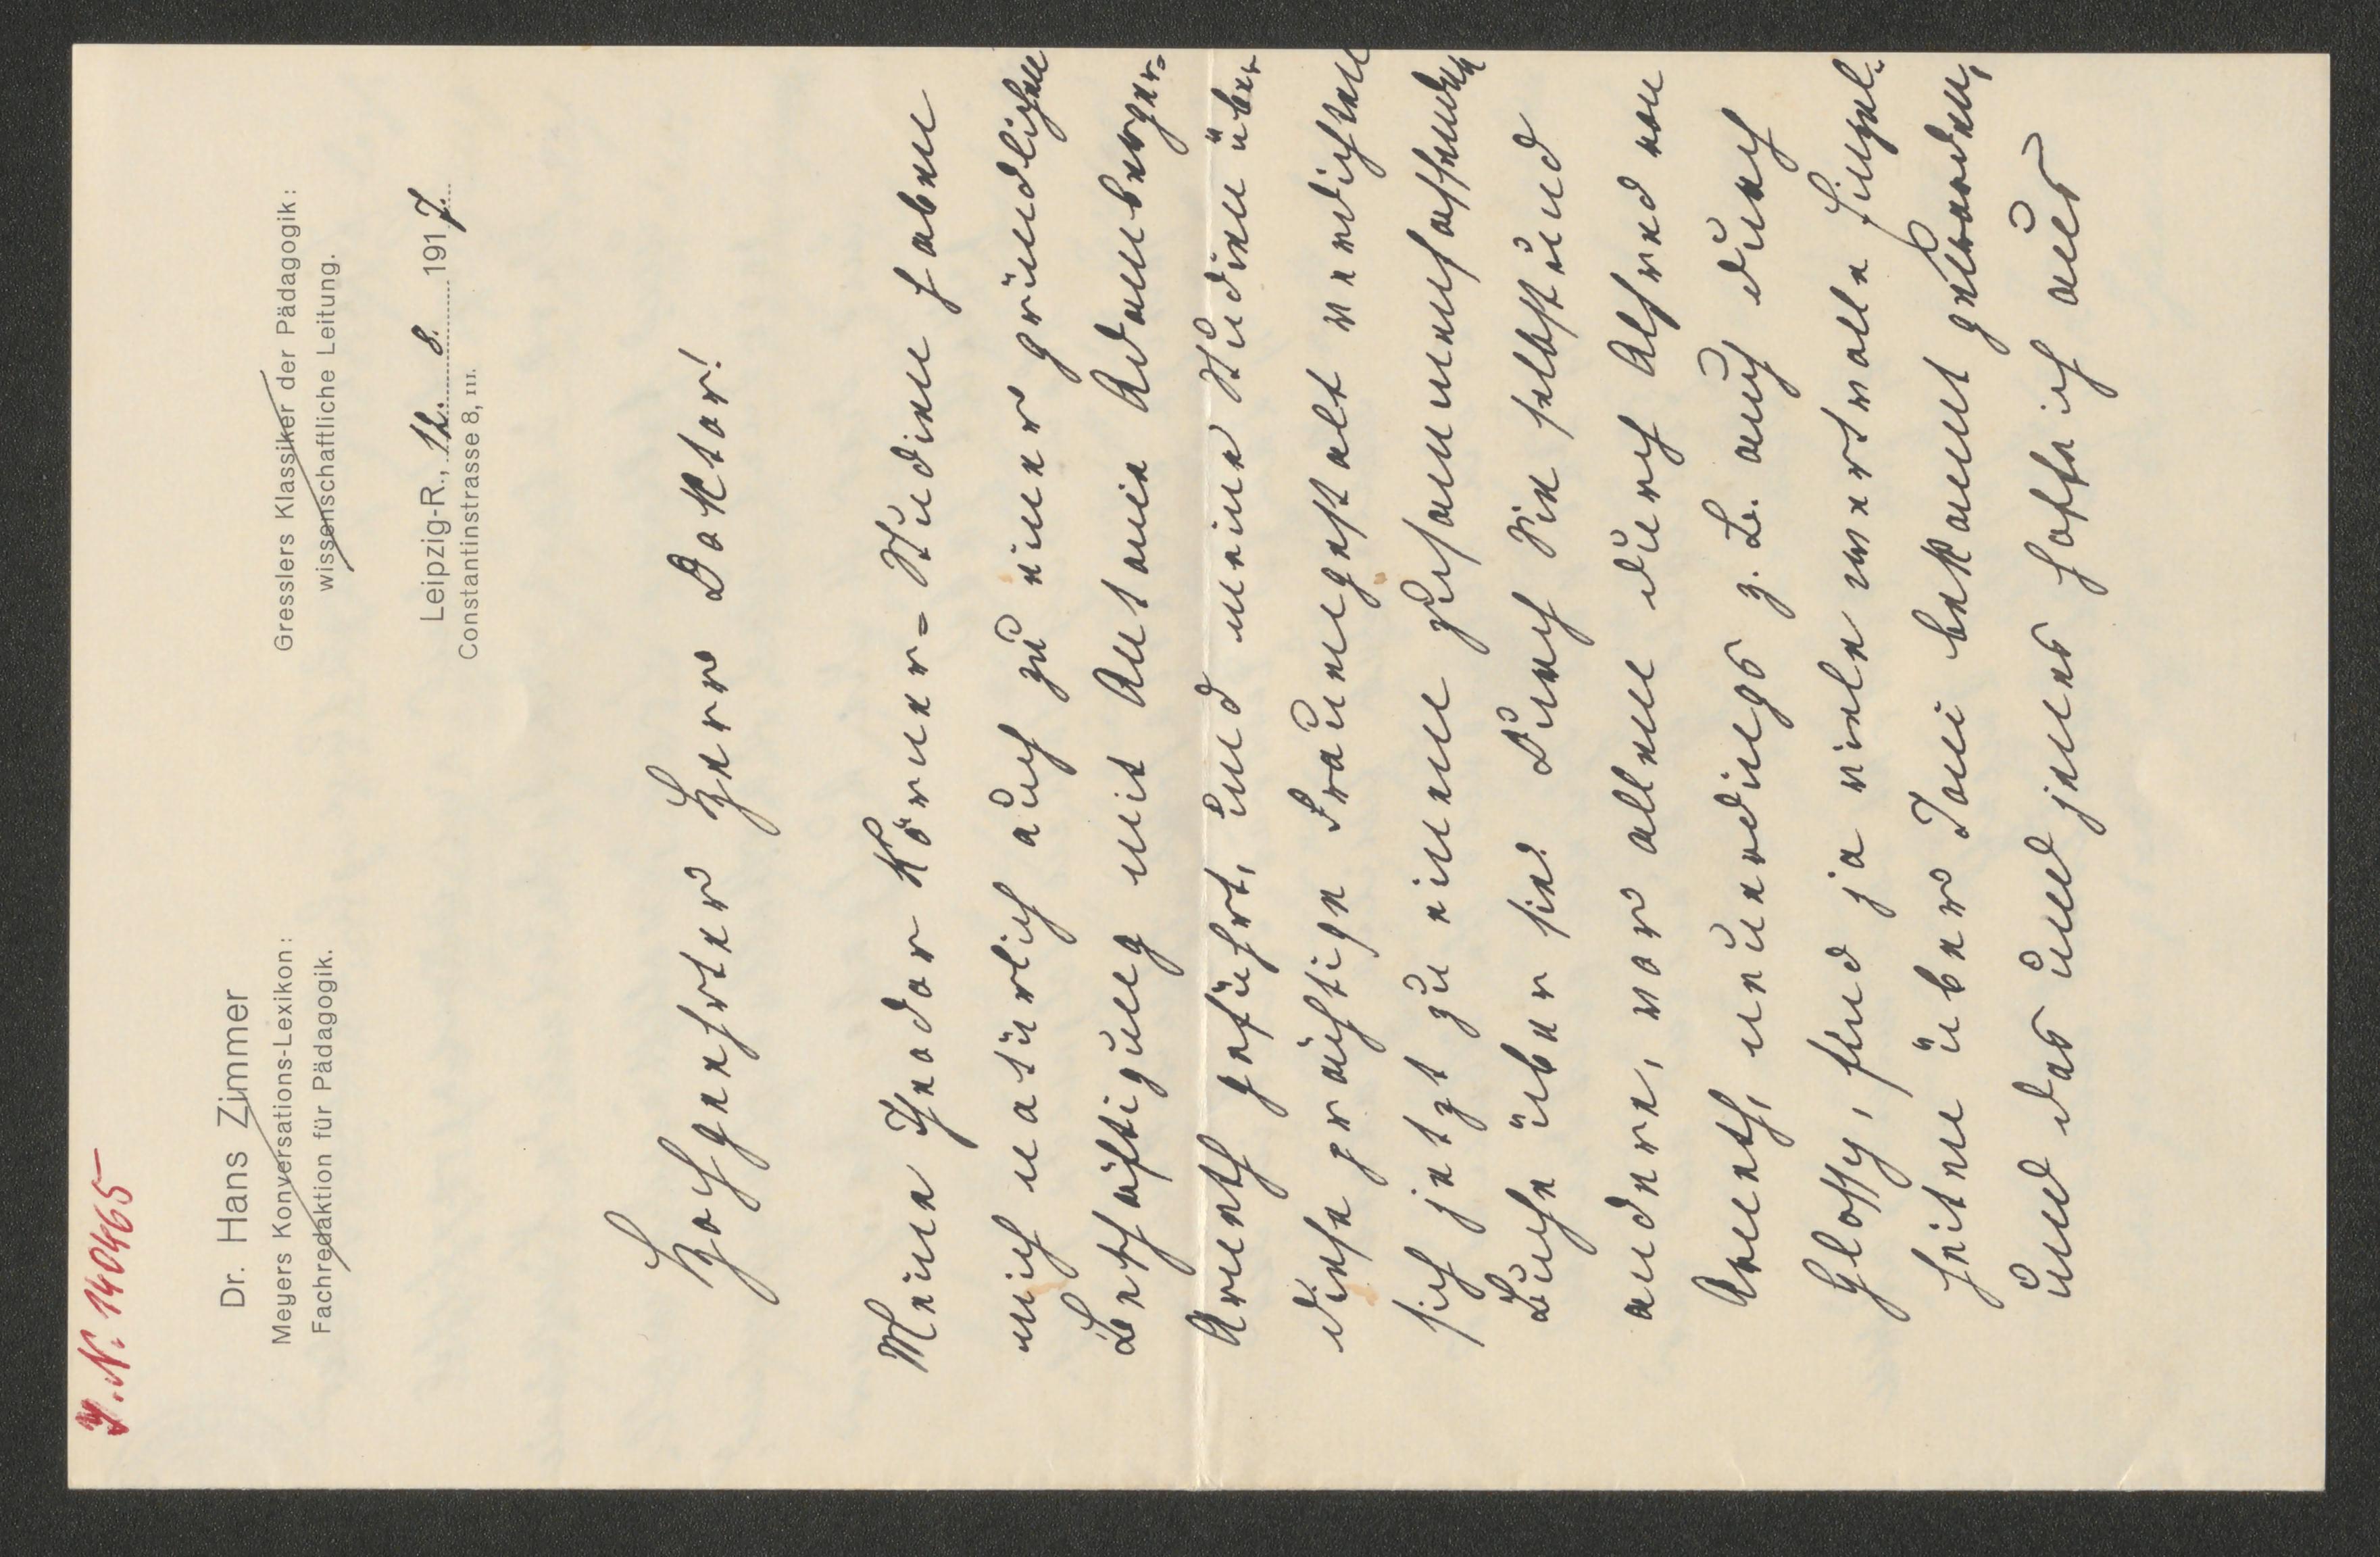 I. N. 140465
Dr. Hans Zimmer
Meyers Konversations-Lexikon:
Fachredaktion für Pädagogik.
Gresslers Klassiker der Pädagogik:
wissenschaftliche Leitung.
Leipzig-R., 12. 8. 1917.
Constantinstrasse 8, III.
Hochgeehrter Herr Doktor!
Meine Theodor Körner-Studien haben
mich natürlich auch zu einer gründlichen
Beschäftigung mit Antonie Adamberger-
Arneth geführt, und meine Studien über
diese prächtige Frauengestalt verdichten
sich jetzt zu einem zusammenfassenden
Buche über sie. Durch Sie selbst und
andere, vor allem durch Alfred von
Arneth, neuerdings z. B. auch durch
Glossy, sind ja viele wertvolle Einzel-
heiten über Toni bekannt geworden,
und das und jenes hoffe ich aus